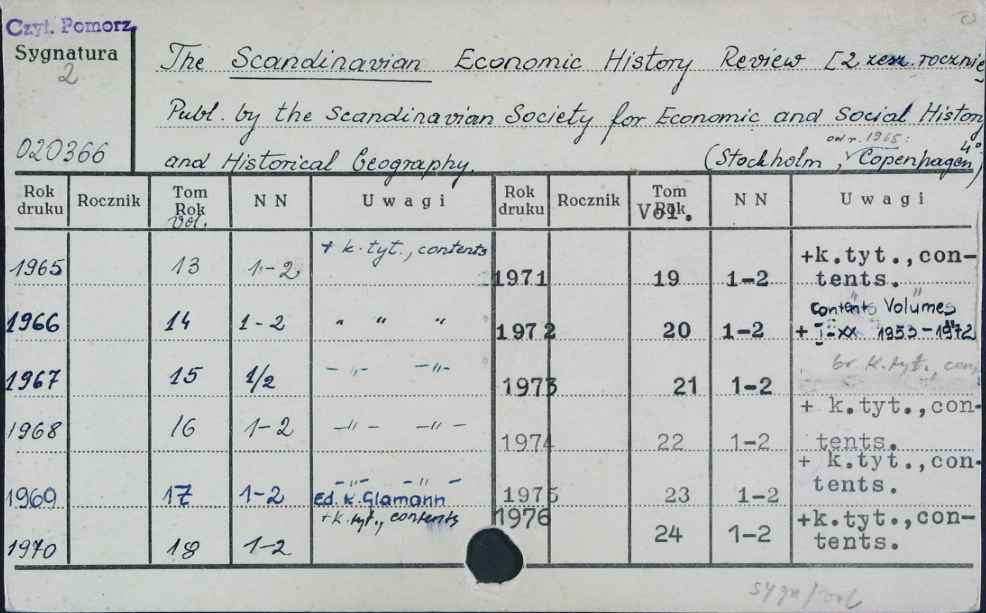 Czyt. Pomorz.
Sygnatura
2
020366
The Scandinavian Economic History Review [2 zesz. rocznie]
Publ. by the Scandinavian Society for Economic and Social History
and Historical Geography. (Stockholm, od r. 1965: Copenhagen) 4°
Rok druku Rocznik Tom Rok Vol. NN Uwagi Rok druku Rocznik Tom Rok Vol. NN Uwagi
1965 13 1-2 + k. tyt., contents 1971 19 1-2 +k.tyt.,con-
tents.
1966 14 1-2 " " " 1972 20 1-2 + contents Volumes
I-XX 1953-1972
1967 15 1/2 -"- -"- 1973 21 1-2 br k.tyt.,
+ k.tyt.,con-
1968 16 1-2 -"- -"- 1974 22 1-2 tents.
+ k.tyt.,con-
1969 17 1-2 -"- -"- 1975 23 1-2 tents.
Ed. K. Glamann
+ k. tyt., contents 1976 24 1-2 +k.tyt.,con-
1970 18 1-2 tents.